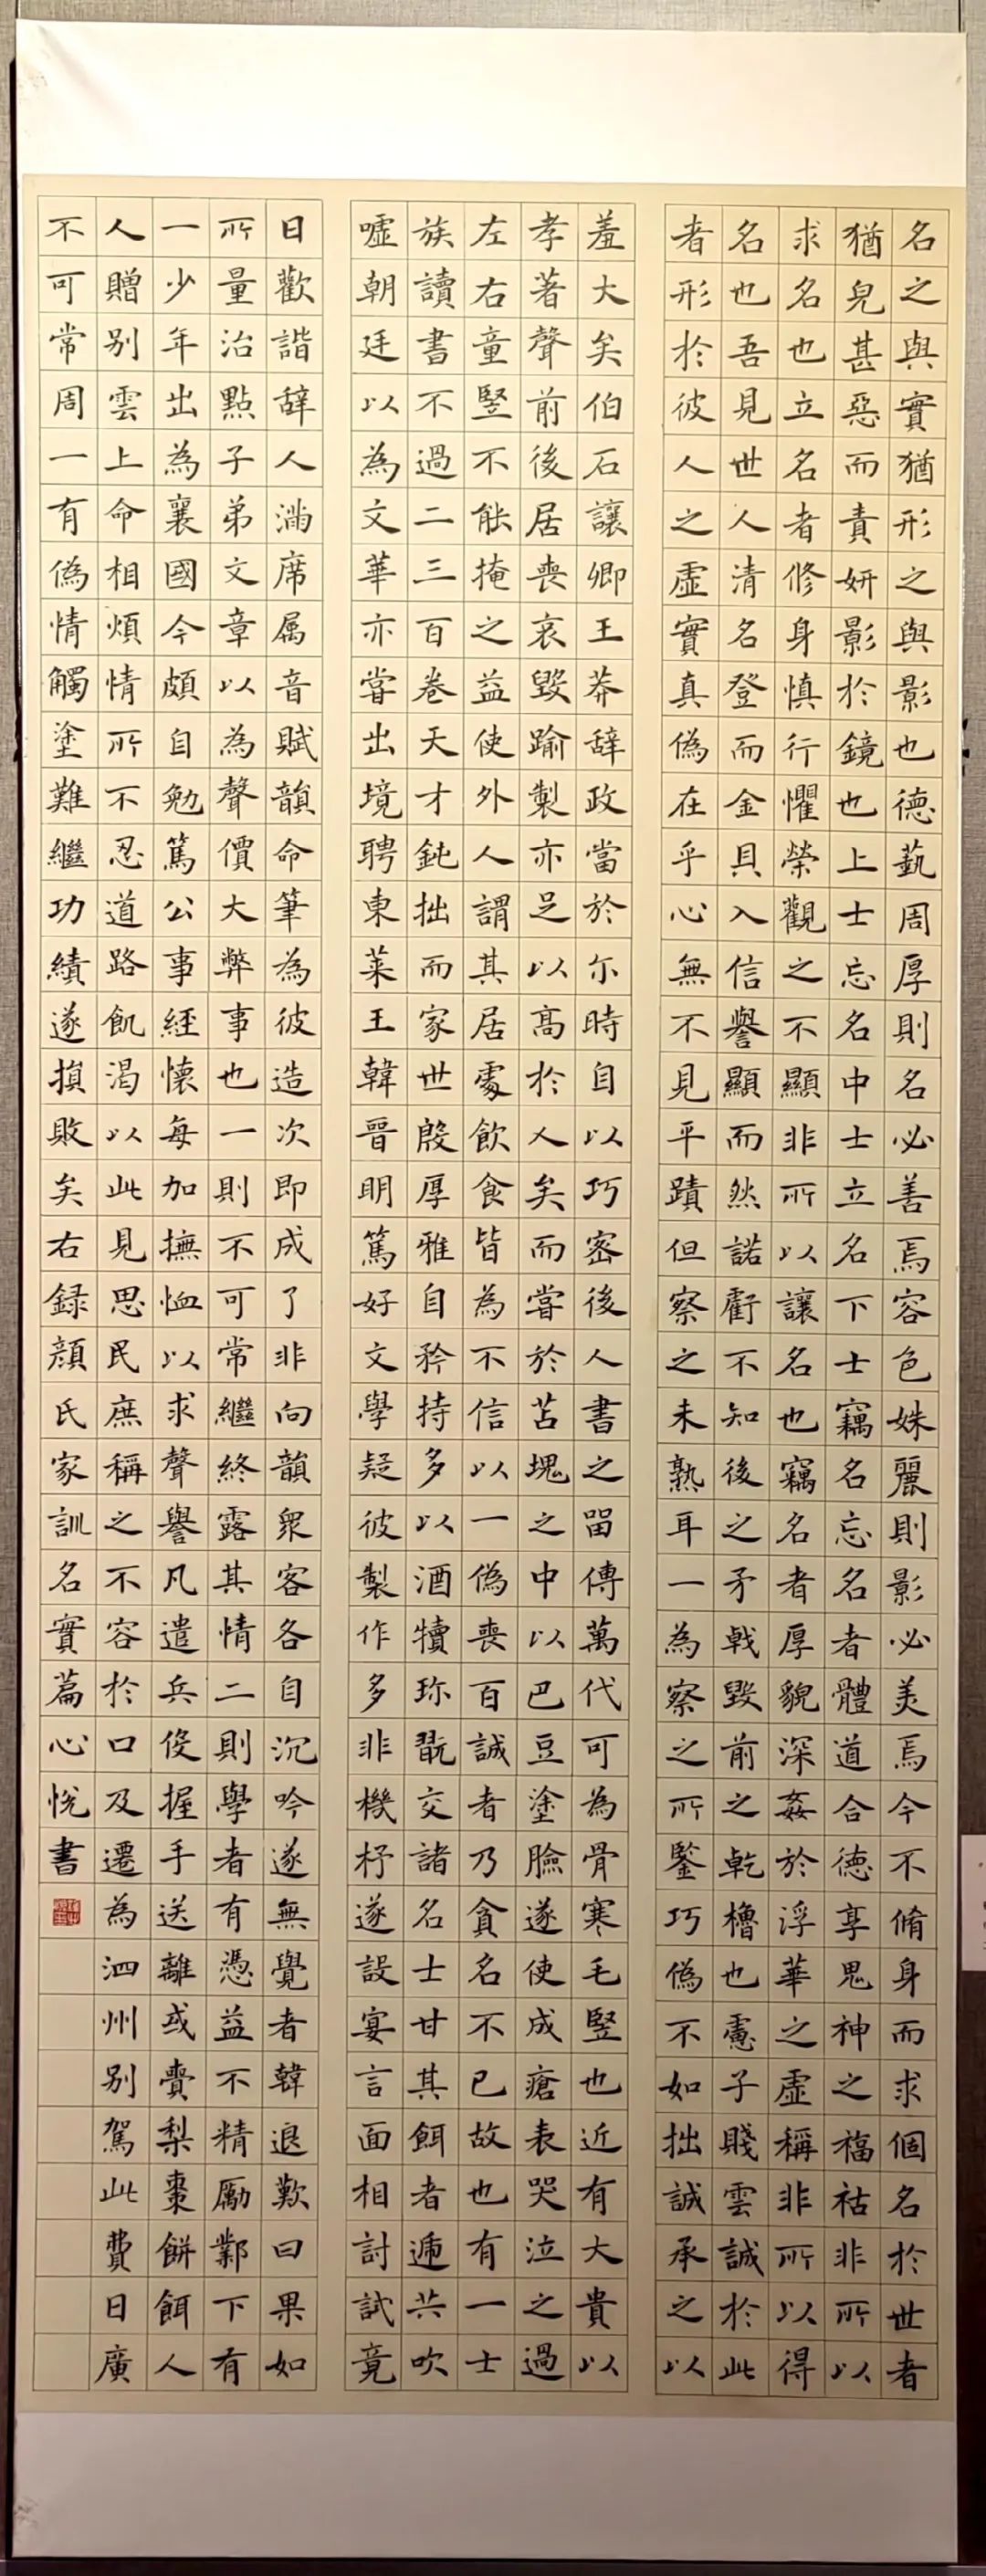 名之與實猶形之與影也德藝周厚則名必善焉容色姝麗則影必美焉今不脩身而求個名於世者
猶皃甚惡而責妍影於鏡也上士忘名中士立名下士竊名忘名者體道合德享鬼神之福祜非所以
求名也立名者修身慎行懼榮觀之不顯非所以讓名也竊名者厚貌深姦於浮華之虛稱非所以得
名也吾見世人清名登而金貝入信譽顯而然諾虧不知後之矛戟毀前之乾櫓也慮子賤雲誠於此
者形於彼人之虛實真偽在乎心無不見平蹟但察之未熟耳一為察之所鑒巧偽不如拙誠承之以
羞大矣伯石讓卿王莽辭政當於尔時自以巧密後人書之留傳萬代可為骨寒毛豎也近有大貴以
孝著聲前後居喪哀毀踰製亦足以高於人矣而嘗於苫塊之中以巴豆塗臉遂使成瘡表哭泣之過
左右童豎不能掩之益使外人謂其居處飲食皆為不信以一偽喪百誠者乃貪名不已故也有一士
族讀書不過二三百卷天才鈍拙而家世殷厚雅自矜持多以酒犢珎翫交諸名士甘其餌者遞共吹
噓朝廷以為文華亦嘗出境聘東萊王韓晉明篤好文學疑彼製作多非機杼遂設宴言面相討試竟
日歡諧辭人滿席属音賦韻命筆為彼造次即成了非向韻衆客各自沉吟遂無覺者韓退歎曰果如
所量治點子弟文章以為聲價大弊事也一則不可常繼終露其情二則學者有憑益不精勵鄴下有
一少年出為襄國令頗自勉篤公事經懷每加撫恤以求聲譽凡遣兵役握手送離或賫梨棗餅餌人
人贈别雲上命相煩情所不忍道路飢渴以此見思民庶稱之不容於口及遷為泗州别駕此費日廣
不可常周一有偽情觸塗難繼功績遂損敗矣右録顏氏家訓名實篇心悅書